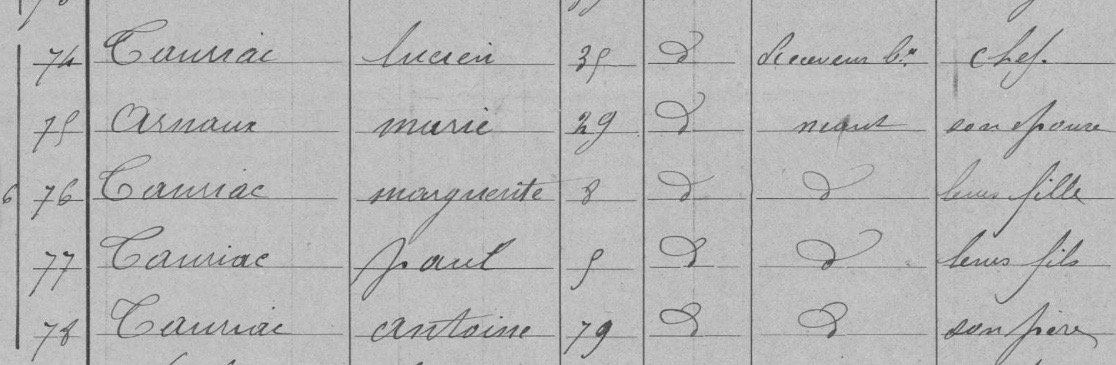 74 Tauriac lucien 35 d Receveur br. chef.
75 Arnaux marie 29 d neant son épouse
6 76 Tauriac marguerite 8 d d leur fille
77 Tauriac paul 5 d d leurs fils
78 Tauriac antoine 79 d d son père